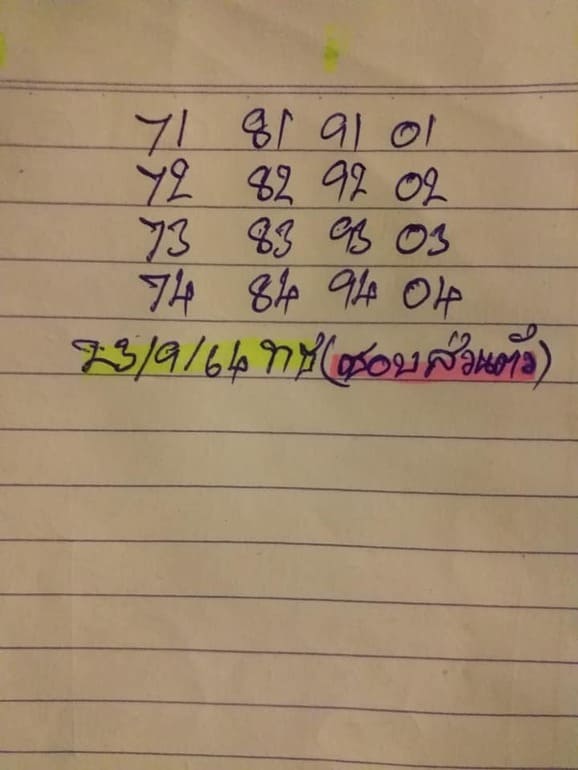 71 81 91 01
72 82 92 02
73 83 93 03
74 84 94 04
23/9/64 (ชอบส่วนตัว)